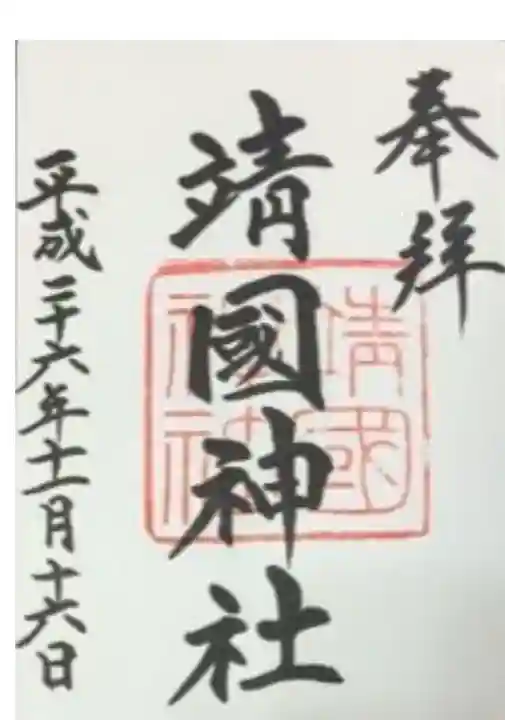 奉拝
靖國神社
靖國
神社
平成二十六年十一月十六日